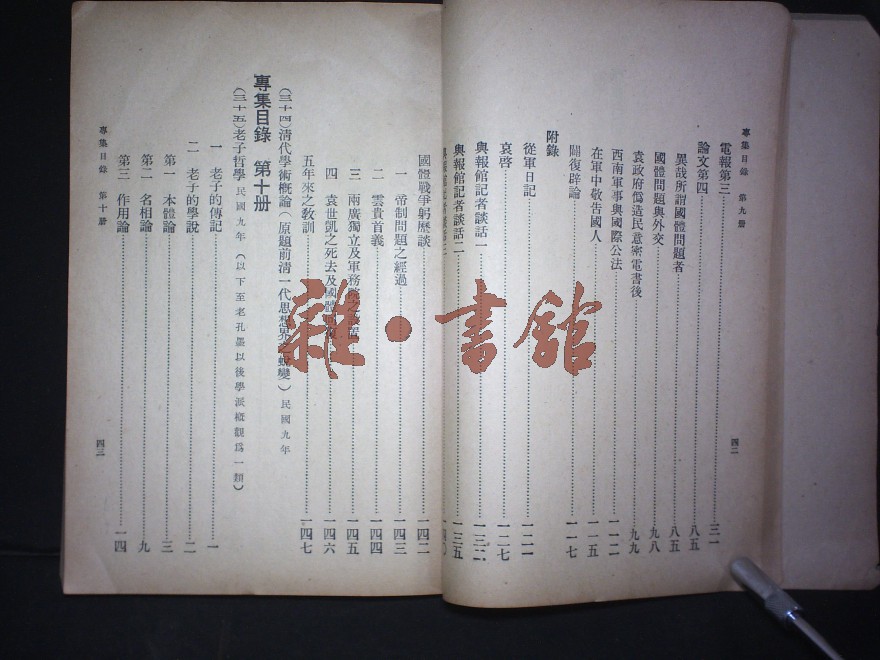 專集目錄 第九册
四二
電報第三 三一
論文第四 八五
異哉所謂國體問題者 八五
國體問題與外交 九八
袁政府僞造民意密電書後 九九
西南軍事與國際公法 一一二
在軍中敬告國人 一一五
闢復辟論 一一七
附錄
從軍日記 一二一
哀啓 一二七
與報館記者談話一 一三二
與報館記者談話二 一三五
國體戰爭躬歷談 一四二
一 帝制問題之經過 一四三
二 雲貴首義 一四四
三 兩廣獨立及軍務院之 一四五
四 袁世凱之死去及國體 一四六
五年來之教訓 一四七
(三十四)清代學術概論(原題前清一代思想界之蛻變)民國九年
專集目錄 第十册
(三十五)老子哲學 民國九年 (以下至老孔墨以後學派概觀爲一類)
一 老子的傳記 一
二 老子的學說 二
第一 本體論 三
第二 名相論 九
第三 作用論 一四
專集目錄 第十册
四三
雜·書館